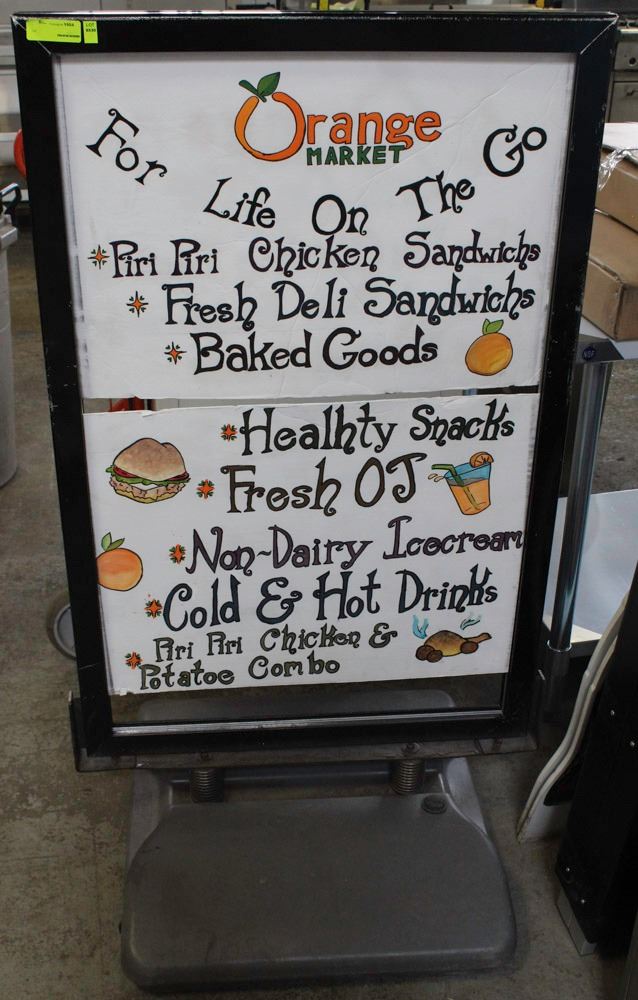 LOT
Orange
MARKET
For Life On The Go
Piri Piri Chicken Sandwichs
Fresh Deli Sandwichs
Baked Goods
Healhty Snacks
Fresh OJ
Non-Dairy Icecream
Cold & Hot Drinks
Piri Piri Chicken &
Potatoe Combo